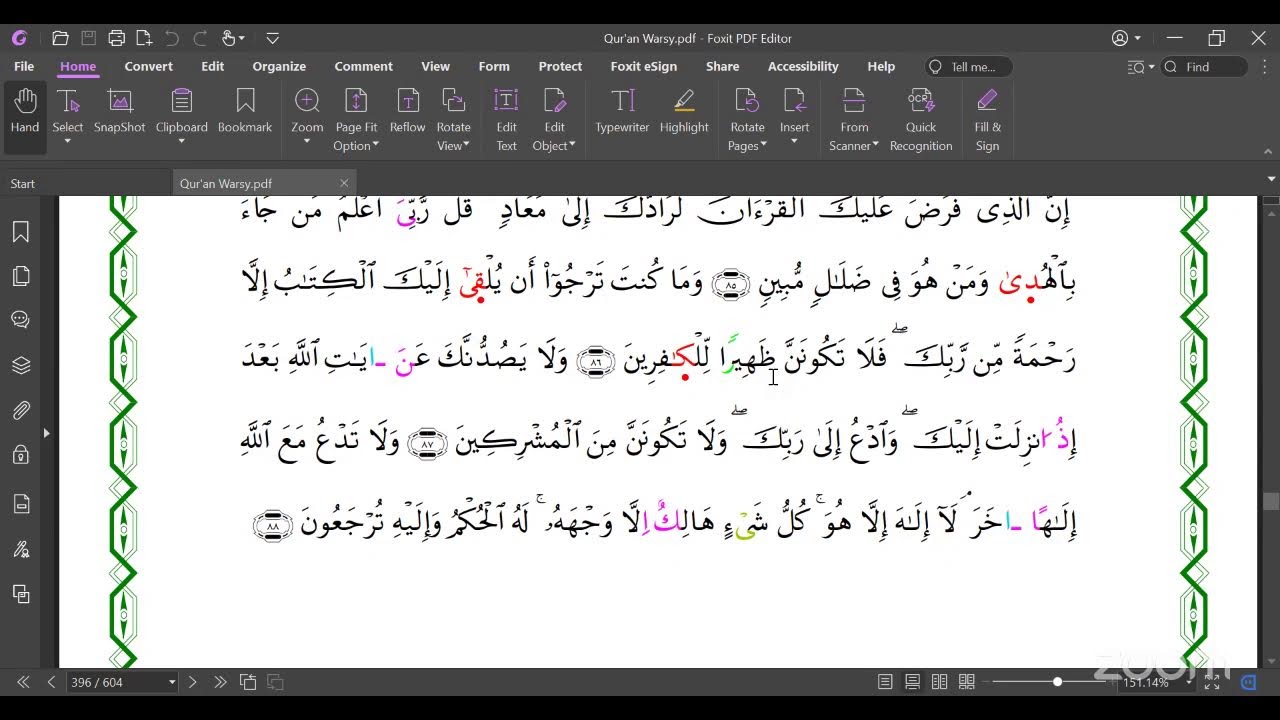 Qur'an Warsy.pdf - Foxit PDF Editor
File Home Convert Edit Organize Comment View Form Protect Foxit eSign Share Accessibility Help Tell me... Find
Hand Select SnapShot Clipboard Bookmark Zoom Page Fit Option Reflow Rotate View Edit Text Edit Object Typewriter Highlight Rotate Pages Insert From Scanner OCR Quick Recognition Fill & Sign
Start Qur'an Warsy.pdf
إِنَّ ٱلَّذِى فَرَضَ عَلَيْكَ ٱلْقُرْءَانَ لَرَآدُّكَ إِلَىٰ مَعَادٍۢ قُل رَّبِّىَ أَعْلَمُ مَن جَآءَ
بِٱلْهُدِىٰ وَمَنْ هُوَ فِى ضَلَـٰلٍۢ مُّبِينٍۢ ٨٥ وَمَا كُنتَ تَرْجُوٓا۟ أَن يُلْقِىٰٓ إِلَيْكَ ٱلْكِتَـٰبُ إِلَّا
رَحْمَةً مِّن رَّبِّكَ ۖ فَلَا تَكُونَنَّ ظَهِيرًا لِّلْكَـٰفِرِينَ ٨٦ وَلَا يَصُدُّنَّكَ عَنَ ـايَـٰتِ ٱللَّهِ بَعْدَ
إِذُ ا۟نزِلَتْ إِلَيْكَ ۖ وَٱدْعُ إِلَىٰ رَبِّكَ ۖ وَلَا تَكُونَنَّ مِنَ ٱلْمُشْرِكِينَ ٨٧ وَلَا تَدْعُ مَعَ ٱللَّهِ
إِلَـٰهًا ـاخَرَ ۘ لَآ إِلَـٰهَ إِلَّا هُوَ ۚ كُلُّ شَىْءٍ هَالِكٌ اِلَّا وَجْهَهُۥ ۚ لَهُ ٱلْحُكْمُ وَإِلَيْهِ تُرْجَعُونَ ٨٨
396 / 604 151.14%
zoom